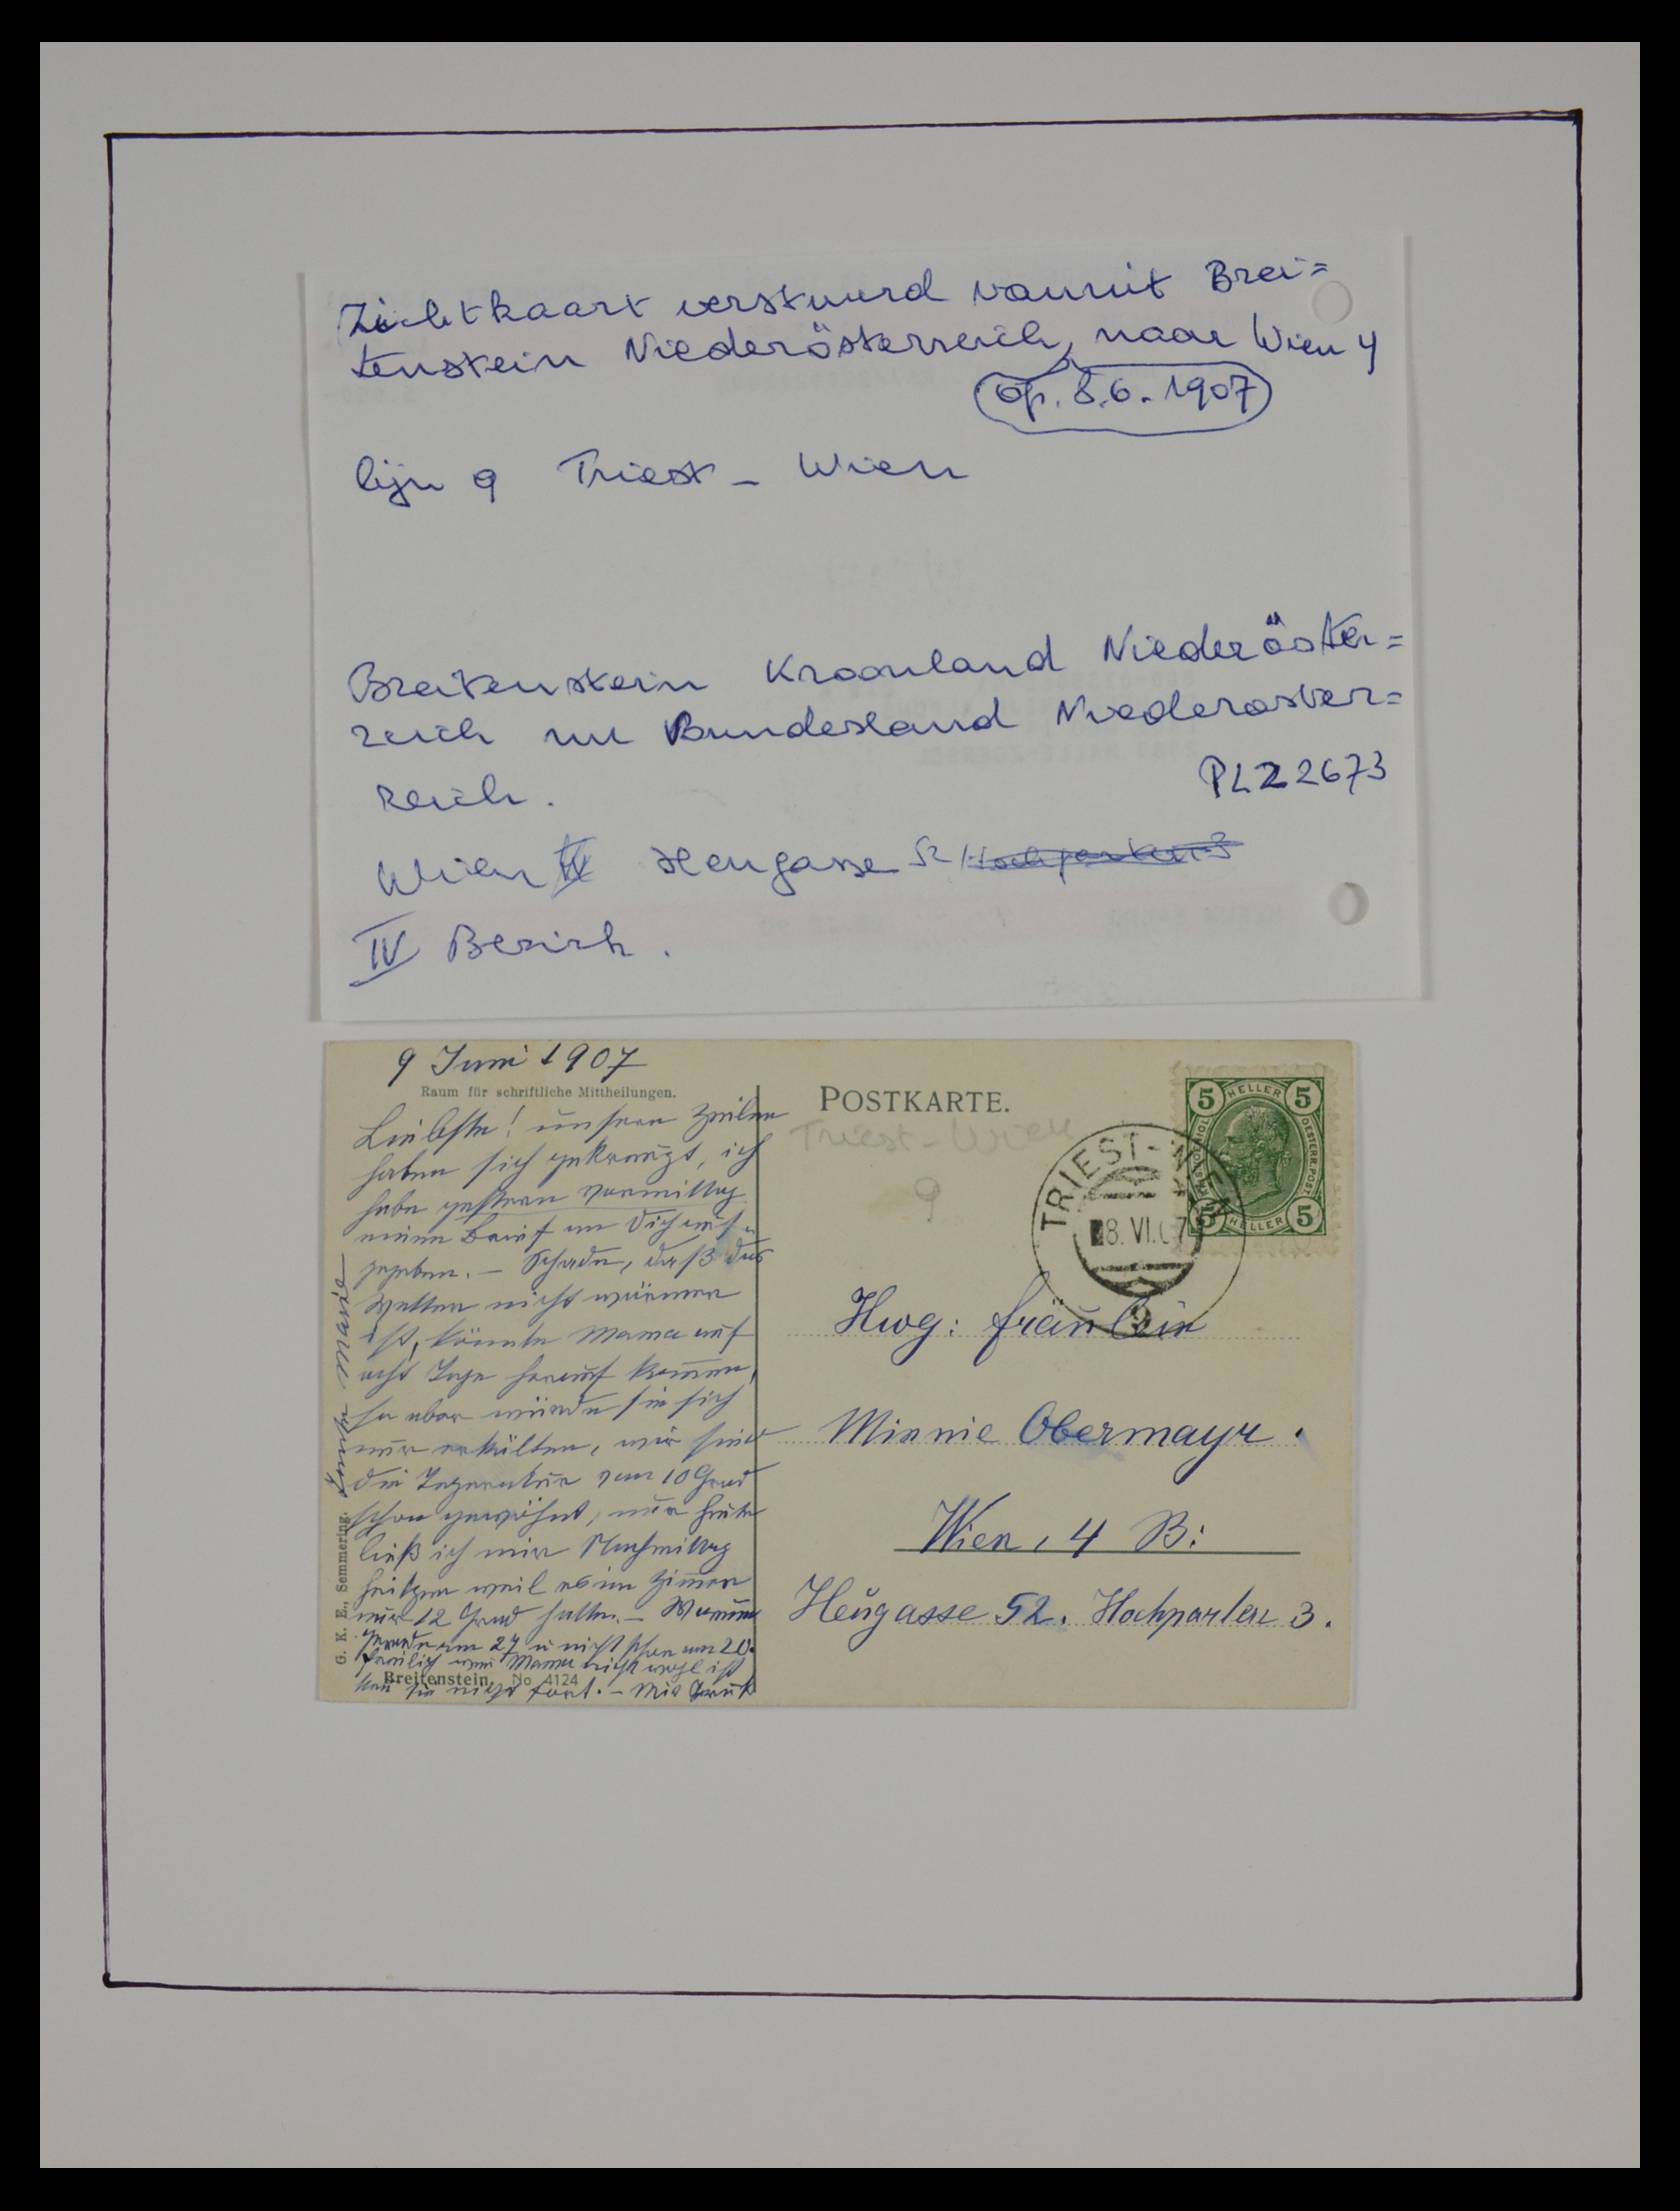 Zichtkaart verstuurd vanuit Brei=
tenstein Niederösterreich, naar Wien 4
op. 8.6.1907
lijn 9 Triest - Wien
Breitenstein Kroonland Niederöster=
reich nu Bundesland Niederoster=
reich.
PLZ 2673
Wien IV Heugasse 52 Hochparterr 3
IV Bezirk.
9 Juni 1907
Raum für schriftliche Mittheilungen.
Liebste! unsere Zeilen
haben sich gekreuzt, ich
habe gestern vormittag
einen Brief an Dich aufge
geben. – Schade, daß das
Wetter nicht wärmer
ist, könnte Mama auf
acht Tage herauf kommen,
so aber würde sie sich
nur erkälten, wir sind
die Temperatur von 10 Grad
schon gewöhnt, nur heute
ließ ich mir Nachmittag
heitzen weil es im Zimmer
nur 12 Grad hatte. – Warum
gerade am 27 u nicht schon am 20.
freilich wenn Mama nicht wohl ist
kan sie nicht fort. – Mit Gruß
G. K. E., Semmering.
Breitenstein. No 4124
POSTKARTE.
Triest - Wien
9
TRIEST - WIEN
8. VI. 07
9
5 HELLER 5
KAIS. KÖNIGL. OESTERR. POST
5 HELLER 5
Hwg: Fräulein
Minnie Obermayr.
Wien, 4 B:
Heugasse 52. Hochparterr 3.